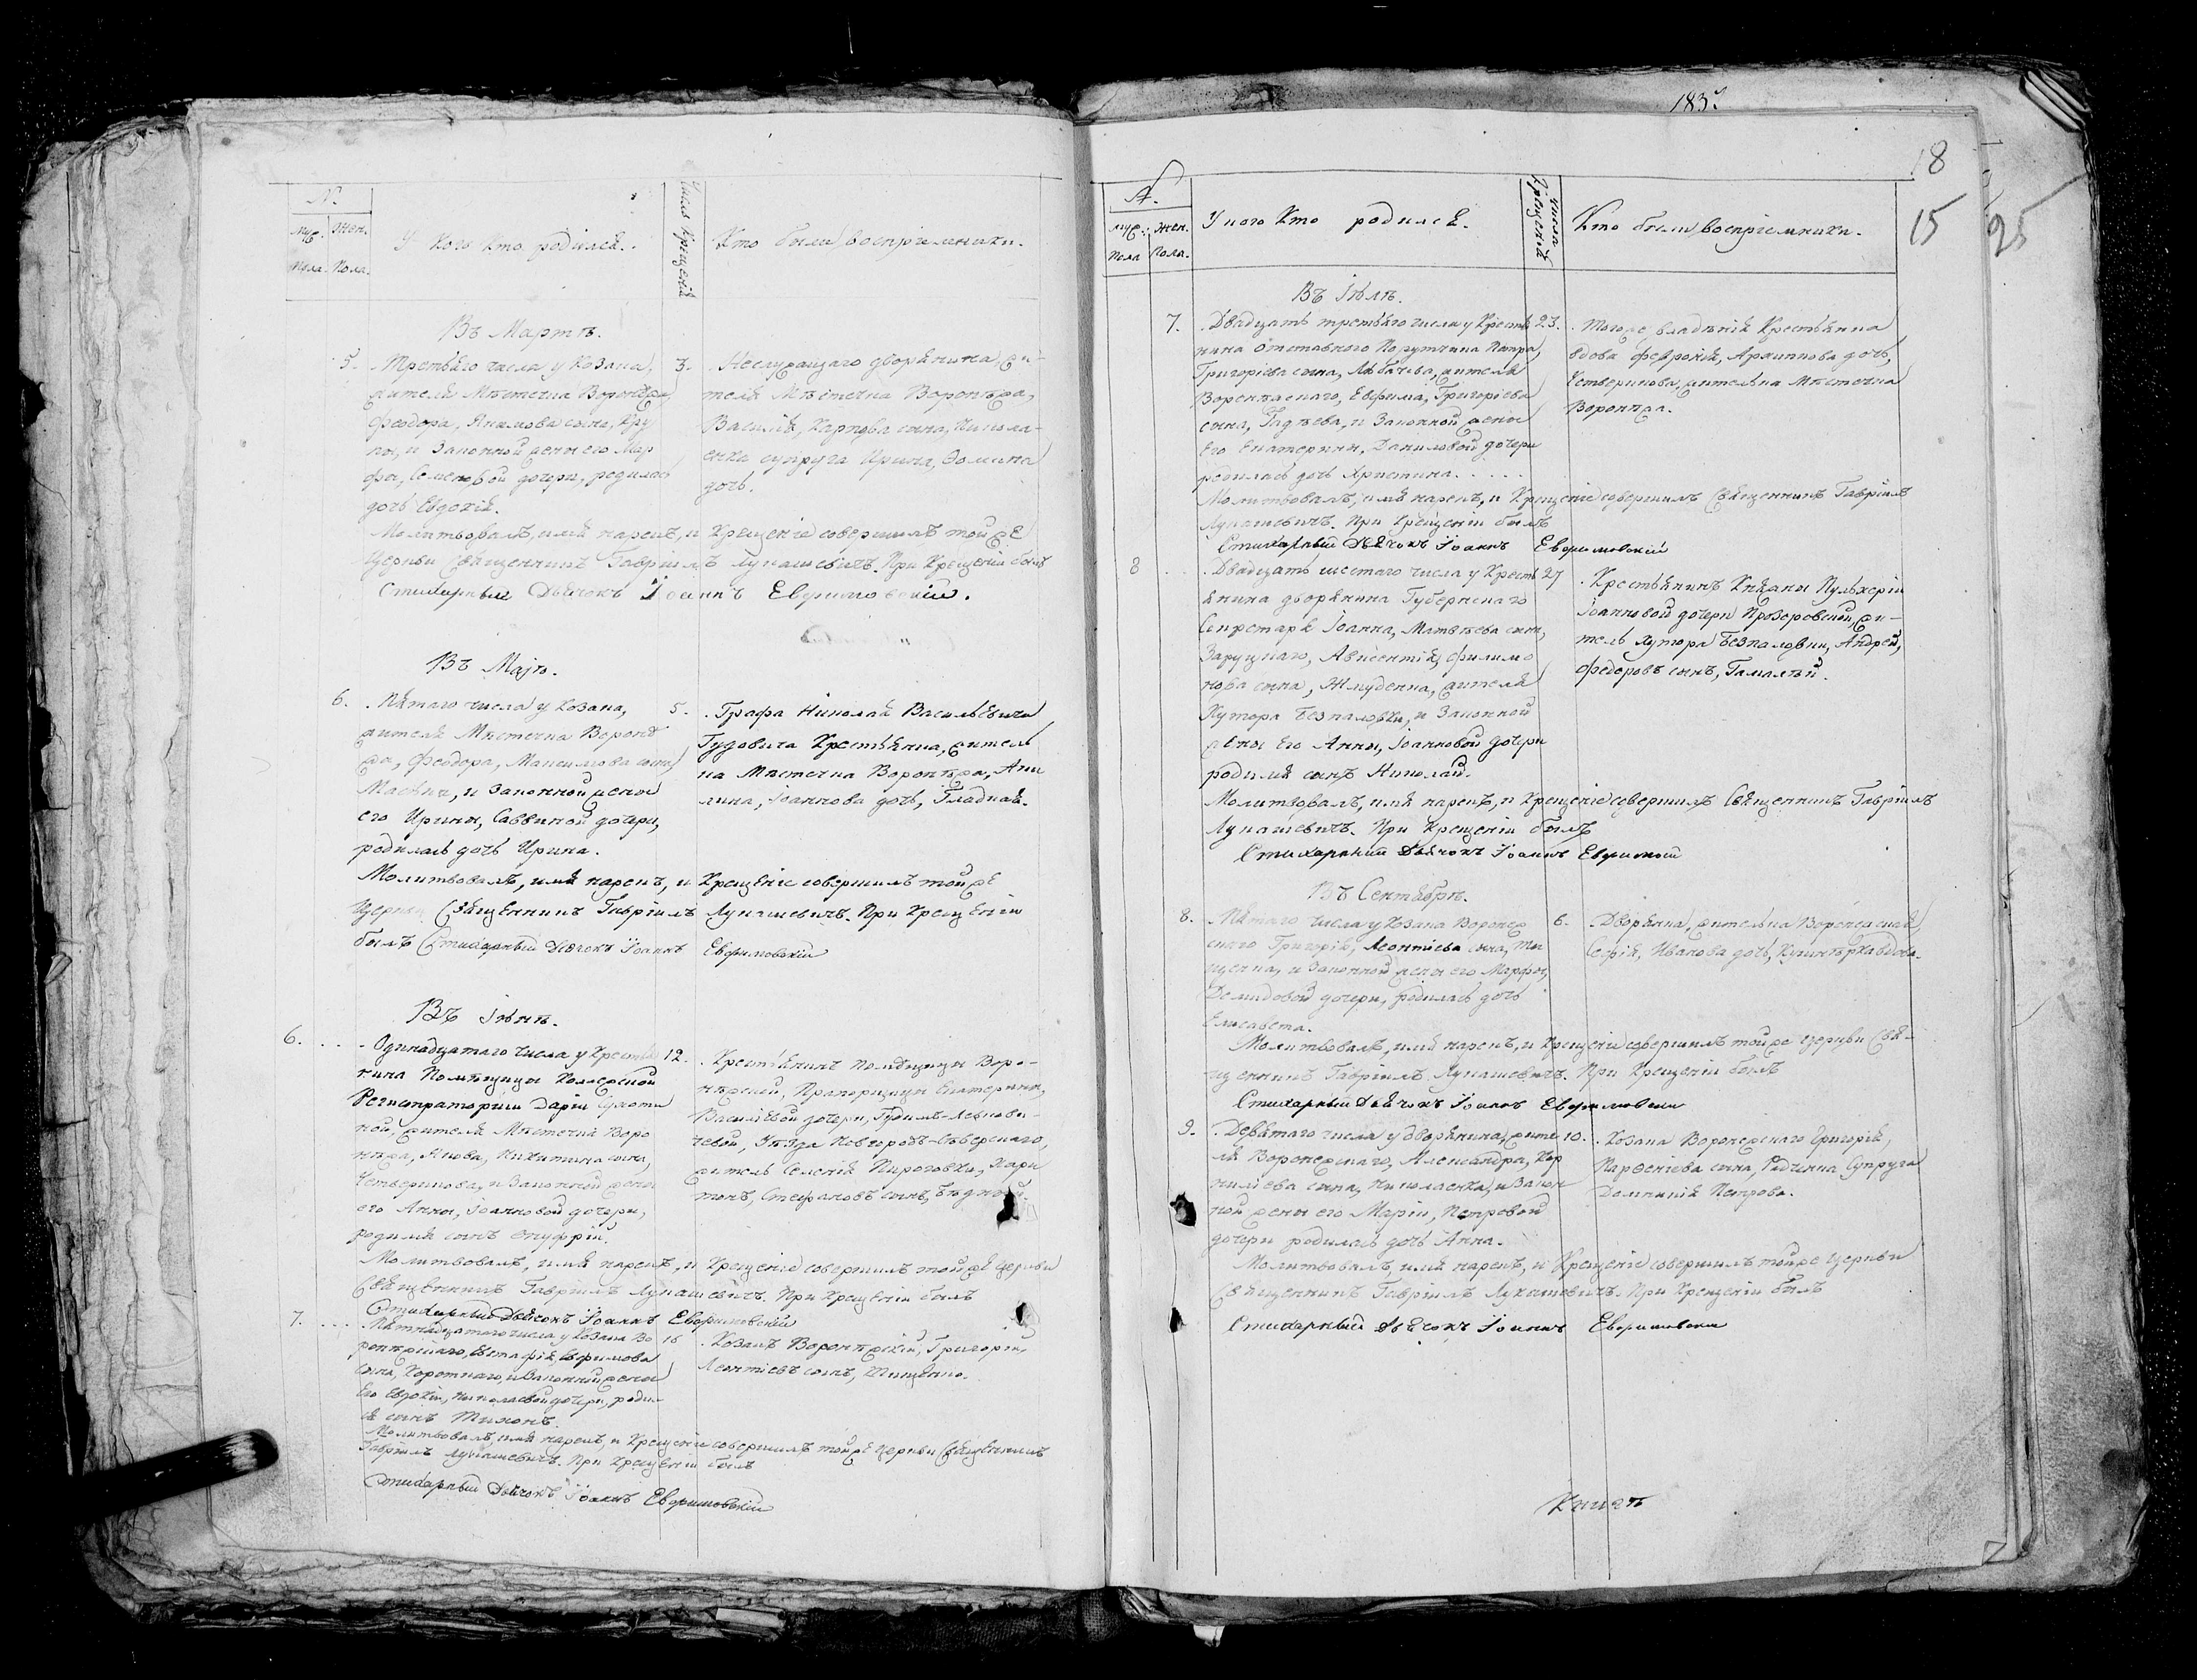 №
муж. пола.
жен. пола.
У кого кто родился.
число крещенія
Кто были воспріемники.
Въ Мартѣ.
5.
Третьяго числа у козака,
жителя Мѣстечка Воронѣжа
Феодора, Якимова сына,
и законной жены его Мар
фы, Семеновой дочери, родилась
дочь Евдокія.
3.
Неслужащаго дворянина, жи-
теля Мѣстечка Воронѣжа,
Василія, Карпова сына, Никола-
енка супруга Ирина,
дочь.
Молитвовалъ, имя нарекъ, и крещеніе совершилъ той же
Церкви Священникъ Гавріилъ Лукашевичъ. При крещеніи былъ
Стихарный Дьячокъ Іоаннъ Евфимовскій.
Въ Маіѣ.
6.
Пятаго числа у козака,
жителя Мѣстечка Воронѣ
жа, Феодора, Максимова сына,
и законной жены
его Ирины, Саввиной дочери,
родилась дочь Ирина.
5.
Графа Николая Васильевича
Гудовича крестьянка, житель
ка Мѣстечка Воронѣжа, Аки
лина, Іоаннова дочь, Гладкая.
Молитвовалъ, имя нарекъ, и крещеніе совершилъ той же
Церкви Священникъ Гавріилъ Лукашевичъ. При крещеніи
былъ Стихарный Дьячокъ Іоаннъ Евфимовскій
Въ Іюнѣ.
6.
Одинадцатаго числа у крестья
нина помѣщицы Коллежской
Регистраторши Даріи
ной, жителя Мѣстечка Воро
нѣжа, Якова, Никитина сына,
Четверикова, и законной жены
его Анны, Іоанновой дочери,
родился сынъ Онуфрій.
12.
Крестьянинъ помѣщицы Воро-
нѣжской, Прапорщицы Екатерины,
Васильевой дочери, Гудимъ-Левкови-
чевой, Уѣзда Новгородъ-Сѣверскаго,
житель Селенія Пироговки, Хари
тонъ, Стефановъ сынъ, Бѣдный.
Молитвовалъ, имя нарекъ, и крещеніе совершилъ той же Церкви
Священникъ Гавріилъ Лукашевичъ. При крещеніи былъ
Стихарный Дьячокъ Іоаннъ Евфимовскій
7.
Пятнадцатаго числа у козака Во
ронѣжскаго, Евстафія, Ефимова
сына, Короткаго, и законной жены
его Евдокіи, Николаевой дочери, родил-
ся сынъ Тихонъ.
16
Козакъ Воронѣжскій, Григорій,
Леонтіевъ сынъ, Тищенко.
Молитвовалъ, имя нарекъ, и крещеніе совершилъ той же Церкви Священникъ
Гавріилъ Лукашевичъ. При крещеніи былъ
Стихарный Дьячокъ Іоаннъ Евфимовскій
18
15
25
№.
муж. пола
жен. пола.
У кого кто родился.
число крещенія
Кто были воспріемники.
Въ Іюлѣ.
7.
Двадцать третьяго числа у крестья
нина отставного Порутчика Петра,
Григоріева сына, жителя
Воронѣжскаго, Евфима, Григоріева
сына, и законной жены
его Екатерины, Даниловой дочери
родилась дочь Христина.
23.
Того же владѣнія крестьянка
вдова Февронія, Архипова дочь,
Четверикова, жителька Мѣстечка
Воронѣжа.
Молитвовалъ, имя нарекъ, и крещеніе совершилъ Священникъ Гавріилъ
Лукашевичъ. При крещеніи былъ
Стихарный Дьячокъ Іоаннъ Евфимовскій
8
Двадцать шестаго числа у кресть
янина дворянина Губернскаго
Секретаря Іоанна, Матвѣева сына,
Заруцкаго, Авксентія, Филимо
нова сына, Жмуденка, жителя
Хутора Безпаловки, и законной
жены его Анны, Іоанновой дочери
родился сынъ Николай.
27
Крестьянинъ Княжны Пульхеріи
Іоанновой дочери Прозоровской, жи-
тель хутора Безпаловки, Андрей,
Федоровъ сынъ, Гамалѣй.
Молитвовалъ, имя нарекъ, и крещеніе совершилъ Священникъ Гавріилъ
Лукашевичъ. При крещеніи былъ
Стихарный Дьячокъ Іоаннъ Евфимовскій
Въ Сентябрѣ.
8.
Пятаго числа у козака Воронеж
скаго Григорія, Леонтіева сына, Ти
щенка, и законной жены его Марфы,
Демидовой дочери, родилась дочь
Елисавета.
6.
Дворянка, жителька Воронежская,
Софія, Иванова дочь, вдова.
Молитвовалъ, имя нарекъ, и крещеніе совершилъ той же Церкви Свя-
щенникъ Гавріилъ Лукашевичъ. При крещеніи былъ
Стихарный Дьячокъ Іоаннъ Евфимовскій
9.
Девятаго числа у дворянина, жите
ля Воронежскаго, Александра, Кор
ниліева сына, Николаенка, и закон
ной жены его Маріи, Петровой
дочери родилась дочь Анна.
10.
Козака Воронежскаго Григорія,
Парѳеніева сына, Радченка супруга
Домникія Петрова.
Молитвовалъ, имя нарекъ, и крещеніе совершилъ той же Церкви
Священникъ Гавріилъ Лукашевичъ. При крещеніи былъ
Стихарный Дьячокъ Іоаннъ Евфимовскій
Книгѣ